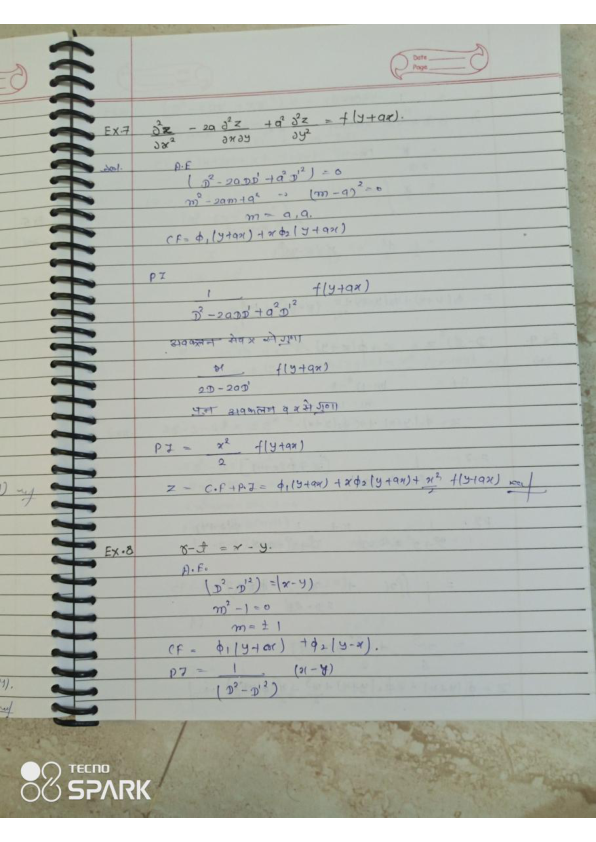 Date
Page
Ex.7 ∂²z/∂x² - 2a ∂²z/∂x∂y + a² ∂²z/∂y² = f(y+ax).
Sol. A.E
(D² - 2aDD' + a²D'²) = 0
m² - 2am + a² = (m-a)² = 0
m = a, a.
CF = φ₁(y+ax) + xφ₂(y+ax)
PI
1/(D² - 2aDD' + a²D'²) f(y+ax)
अवकलन से गुणा
x/(2D - 2aD') f(y+ax)
पुनः अवकलन व x से गुणा
PI = x²/2 f(y+ax)
z = C.F + P.I = φ₁(y+ax) + xφ₂(y+ax) + x²/2 f(y+ax)
Ex.8 r-t = x-y.
A.E.
(D² - D'²) = (x-y)
m² - 1 = 0
m = ± 1
CF = φ₁(y+ax) + φ₂(y-x).
PI = 1/(D² - D'²) (x-y)
TECNO
SPARK